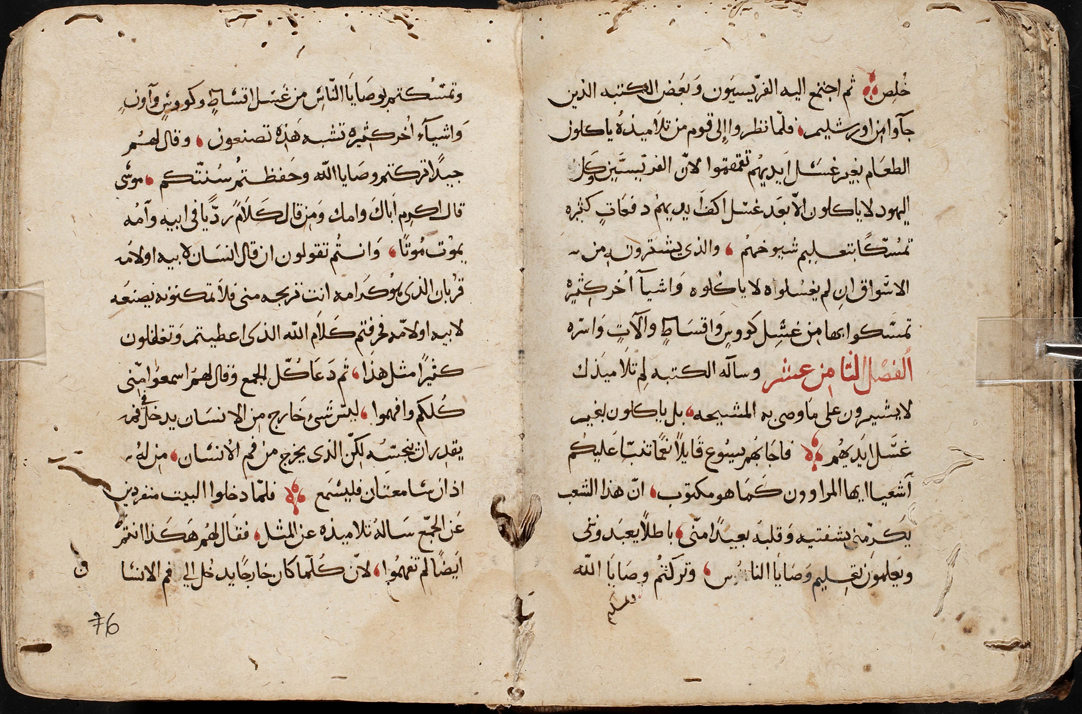 خلص ثم اجتمع اليه الفريسيون وبعض الكتبه الذين
جآوا من اورشليم فلما نظروا الى قوم من تلاميذه ياكلون
الطعام بغير غسل ايديهم تعمقموا لان الفريسيين وكل
اليهود لا ياكلون الا بعد غسل اكف ايديهم دفعات كثيره
تمسكًا بتعليم شيوخهم والذى يشترونه من
الاسواق ان لم يغسلواه لا ياكلوه واشيآ اخر كثيره
تمسكوا بها من غسل كووس واقساط والآت واسره
الفصل الثامن عشر وساله الكتبه لم تلاميذك
لا يسيرون على ما وصى به المشيخه بل ياكلون بغير
غسل ايديهم فاجابهم يسوع قايلًا نعمًا تنبا عليكم
آشعيا ايها المراوون كما هو مكتوب ان هذا الشعب
يكرمنى بشفتيه وقلبه بعيدًا منى باطلًا يعبدونى
ويعلمون تعليم وصايا الناس وتركتم وصايا الله
وتمسكتم بوصايا الناس من غسل اقساط وكووس وآونى
واشيآء اخر كثيره تشبه هذه تصنعون وقال لهم
جيدًا تركتم وصايا الله وحفظتم سنتكم موسى
قال اكرم اباك وامك ومن قال كلام رديًا فى ابيه وآمه
يموت موتًا وانتم تقولون ان قال انسان لابيه اولامه
قربان الذى يوكد امه انت تربحه منى فلا تمكنونه يصنعه
لابيه اولامه فرفتم كلام الله الذى اعطيتم وتفعلون
كثيرًا مثل هذا ثم دعا كل الجمع وقال لهم اسمعوا منى
كلكم وافهموا ليس شى خارج من الانسان يدخل فى فمه
يقدر ان ينجسه لكن الذى يخرج من فم الانسان من له
اذان سامعتان فليسمع فلما دخلوا البيت منفردين
عن الجمع ساله تلاميذه عن المثل فقال لهم هكذا انتم
ايضًا لم تفهموا لان كلما كان خارجا يدخل الى فم الانسا
76